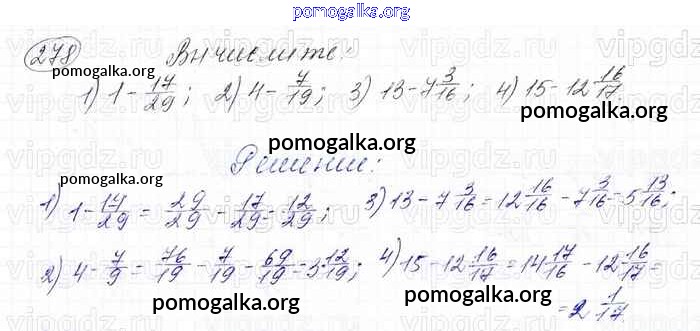 pomogalka.org
278 Вычислите:
1) 1 - 17/29; 2) 4 - 7/19; 3) 13 - 7 3/16; 4) 15 - 12 16/17.
Решение:
1) 1 - 17/29 = 29/29 - 17/29 = 12/29; 3) 13 - 7 3/16 = 12 16/16 - 7 3/16 = 5 13/16;
2) 4 - 7/9 = 76/19 - 7/19 - 69/19 = 3 12/19; 4) 15 - 12 16/17 = 14 17/16 - 12 16/17 =
= 2 1/17.
pomogalka.org
pomogalka.org
pomogalka.org
pomogalka.org
pomogalka.org
pomogalka.org
pomogalka.org
vipgdz.ru